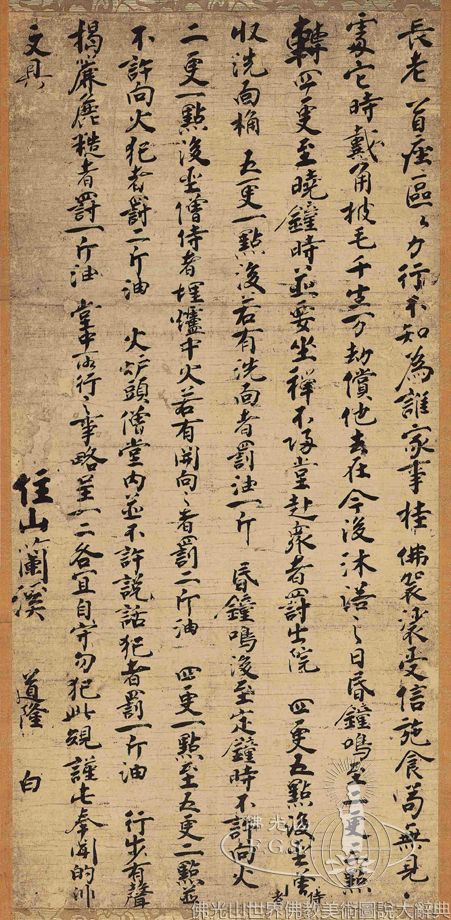 長老首座區々力行不知為誰家事挂佛袈裟受信施食苟無見
處它時戴角披毛千生万劫償他去在今後沐浴之日昏鐘鳴至二更三點
轉四更至曉鐘時並要坐禅不歸堂赴衆者罰出院 四更五點後坐禅侍者
収洗面桶 五更一點後若有洗面者罰油一斤 昏鐘鳴後至定鐘時不許向火
二更一點後坐僧侍者埋爐中火若有開向々者罰二斤油 四更一點至五更二點並
不許向火犯者罰二斤油 火炉頭僧堂内並不許説話犯者罰一斤油 行步有聲
揭簾麁糙者罰一斤油 堂中所行之事略呈一二各宜自守勿犯此規謹此奉聞的非
文具
住山蘭溪 道隆 白
佛光山
FGS
佛光山世界佛教美術圖說大辭典